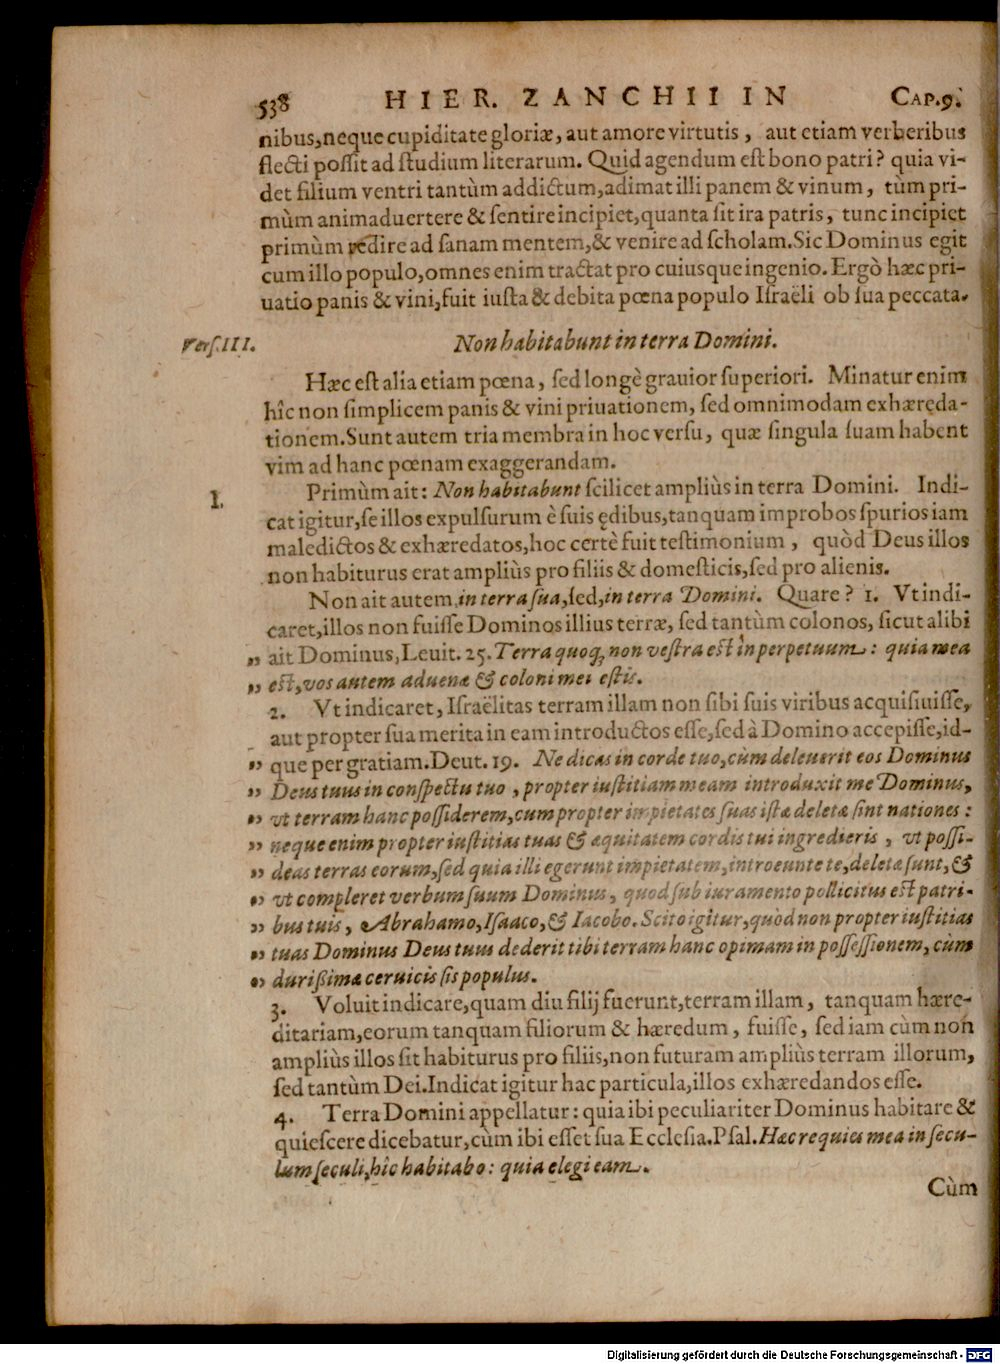 538 HIER. ZANCHII IN CAP.9.
nibus,neque cupiditate gloriæ, aut amore virtutis, aut etiam verberibus
flecti poſſit ad ſtudium literarum. Quid agendum eſt bono patri? quia vi-
det filium ventri tantùm addictum,adimat illi panem & vinum, tùm pri-
mùm animaduertere & ſentire incipiet,quanta ſit ira patris, tunc incipiet
primùm redire ad ſanam mentem,& venire ad ſcholam.Sic Dominus egit
cum illo populo,omnes enim tractat pro cuiusque ingenio. Ergò hæc pri-
uatio panis & vini,fuit iuſta & debita pœna populo Iſraëli ob ſua peccata.
Verſ.III. Non habitabunt in terra Domini.
Hæc eſt alia etiam pœna, ſed longè grauior ſuperiori. Minatur enim
hîc non ſimplicem panis & vini priuationem, ſed omnimodam exhæreda-
tionem.Sunt autem tria membra in hoc verſu, quæ ſingula ſuam habent
vim ad hanc pœnam exaggerandam.
I. Primùm ait: Non habitabunt ſcilicet ampliùs in terra Domini. Indi-
cat igitur,ſe illos expulſurum è ſuis ędibus,tanquam improbos ſpurios iam
maledictos & exhæredatos,hoc certè fuit teſtimonium, quòd Deus illos
non habiturus erat ampliùs pro filiis & domeſticis,ſed pro alienis.
Non ait autem,in terra ſua,ſed,in terra Domini. Quare? 1. Vt indi-
caret,illos non fuiſſe Dominos illius terræ, ſed tantùm colonos, ſicut alibi
„ ait Dominus,Leuit. 25. Terra quoq; non veſtra eſt in perpetuum: quia mea
„ eſt,vos autem aduenæ & coloni mei eſtis.
2. Vt indicaret, Iſraëlitas terram illam non ſibi ſuis viribus acquiſiuiſſe,
aut propter ſua merita in eam introductos eſſe,ſed à Domino accepiſſe,id-
„ que per gratiam.Deut. 19. Ne dicas in corde tuo,cùm deleuerit eos Dominus
„ Deus tuus in conſpectu tuo, propter iuſtitiam meam introduxit me Dominus,
„ vt terram hanc poſſiderem,cum propter impietates ſuas iſtæ deletæ ſint nationes:
„ neque enim propter iuſtitias tuas & æquitatem cordis tui ingredieris, vt poſſi-
„ deas terras eorum,ſed quia illi egerunt impietatem,introeunte te,deletæ ſunt,&
„ vt compleret verbum ſuum Dominus, quod ſub iuramento pollicitus eſt patri-
„ bus tuis, Abrahamo,Iſaaco,& Iacobo. Scito igitur,quòd non propter iuſtitias
„ tuas Dominus Deus tuus dederit tibi terram hanc opimam in poſſeſſionem, cùm
„ durißimæ ceruicis ſis populus.
3. Voluit indicare,quam diu filij fuerunt,terram illam, tanquam hære-
ditariam,eorum tanquam filiorum & hæredum, fuiſſe, ſed iam cùm non
ampliùs illos ſit habiturus pro filiis,non futuram ampliùs terram illorum,
ſed tantùm Dei.Indicat igitur hac particula,illos exhæredandos eſſe.
4. Terra Domini appellatur: quia ibi peculiariter Dominus habitare &
quieſcere dicebatur,cùm ibi eſſet ſua Eccleſia.Pſal.Hæc requies mea in ſecu-
lum ſeculi,hîc habitabo: quia elegi eam.
Cùm
Digitalisierung gefördert durch die Deutsche Forschungsgemeinschaft - DFG